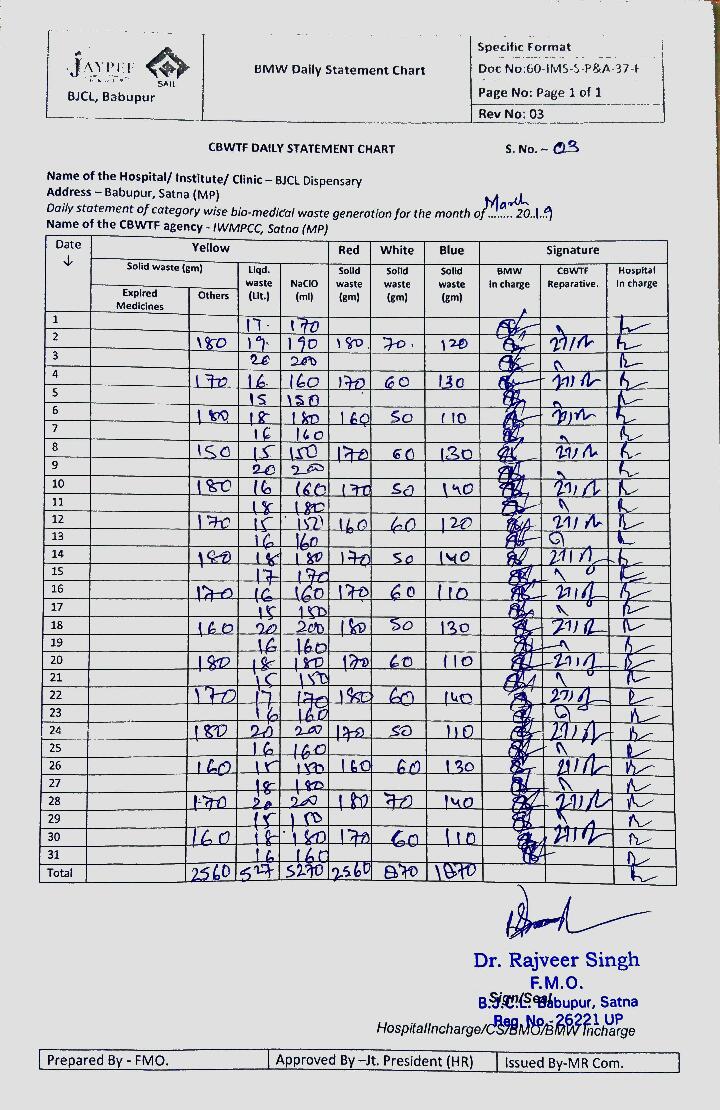 JAYPEE
SAIL
BJCL, Babupur
BMW Daily Statement Chart
Specific Format
Doc No:60-IMS-S-P&A-37-F
Page No: Page 1 of 1
Rev No: 03
CBWTF DAILY STATEMENT CHART S. No. – 03
Name of the Hospital/ Institute/ Clinic – BJCL Dispensary
Address – Babupur, Satna (MP)
Daily statement of category wise bio-medical waste generation for the month of March 2019
Name of the CBWTF agency - IWMPCC, Satna (MP)
Date ↓ Yellow Red White Blue Signature
Solid waste (gm) Liqd. waste (Lit.) NaClO (ml) Solid waste (gm) Solid waste (gm) Solid waste (gm) BMW in charge CBWTF Reparative. Hospital In charge
Expired Medicines Others
1 17. 170
2 180 19. 190 180. 70. 120
3 20 200
4 170 16. 160 170 60 130
5 15 150
6 180 18 180 160 50 110
7 16 160
8 150 15 150 170 60 130
9 20 200
10 180 16 160 170 50 140
11 18 180
12 170 15 150 160 60 120
13 16 160
14 180 18 180 170 50 140
15 17 170
16 170 16 160 170 60 110
17 15 150
18 160 20 200 180 50 130
19 16 160
20 180 18 180 170 60 110
21 15 150
22 170 17 170 180 60 140
23 16 160
24 180 20 200 170 50 110
25 16 160
26 160 15 150 160 60 130
27 18 180
28 170 20 200 180 70 140
29 15 150
30 160 18 180 170 60 110
31 16 160
Total 2560 527 5270 2560 870 1870
Dr. Rajveer Singh
F.M.O.
Sign/Seal
B.J.C.L. Babupur, Satna
Reg. No.-26221 UP
HospitalIncharge/CS/BMO/BMW Incharge
Prepared By - FMO. Approved By –Jt. President (HR) Issued By-MR Com.